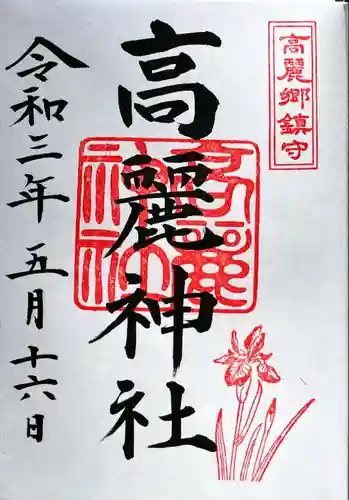 高麗郷鎮守
高麗神社
令和三年五月十六日
高麗神社